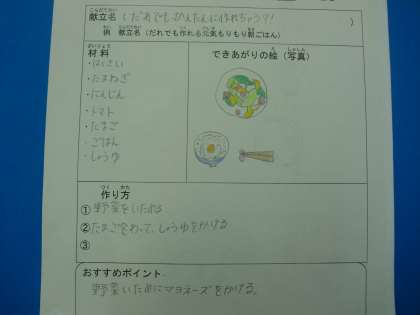 献立名 しだれでもかんたんに作れちゃう?!
例 献立名（だれでも作れる元気もりもり朝ごはん）
材料
できあがりの絵（写真）
・はくさい
・たまねぎ
・にんじん
・トマト
・たまご
・ごはん
・しょうゆ
作り方
①野菜をいためる
②たまごをわって、しょうゆをかける
③
おすすめポイント
野菜いためにマヨネーズをかける。